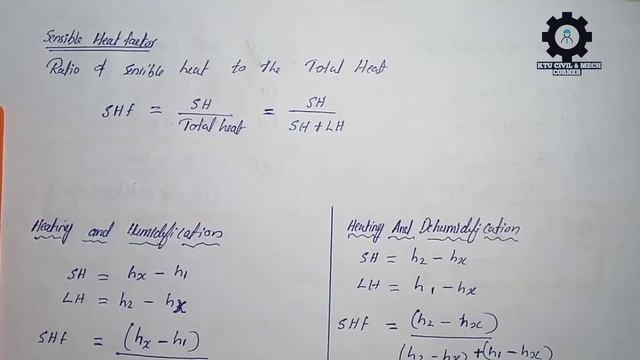 Sensible Heat factor
Ratio of sensible heat to the Total Heat
SHf = SH / Total heat = SH / SH + LH
KTU CIVIL & MECH
CORNER
Heating and Humidification
SH = hx - h1
LH = h2 - hx
SHf = (hx - h1)
Heating And Dehumidification
SH = h2 - hx
LH = h1 - hx
SHF = (h2 - hx) / (h2 - hx) + (h1 - hx)